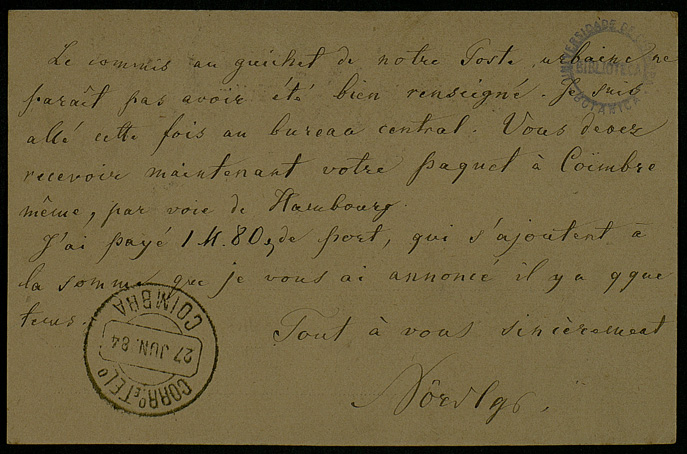 Le commis au guichet de notre Poste urbaine ne
paraît pas avoir été bien renseigné. Je suis
allé cette fois au bureau central. Vous devez
recevoir maintenant votre paquet à Coïmbre
même, par voie de Hambourg.
J'ai payé 1 M. 80 de port, qui s'ajoutent à
la somme que je vous ai annoncé il y a qque
tems.
Tout à vous sincèrement
UNIVERSIDADE DE COIMBRA
BIBLIOTECA
BOTANICA
COIMBRA
27 JUN. 84
CORRº E TELº